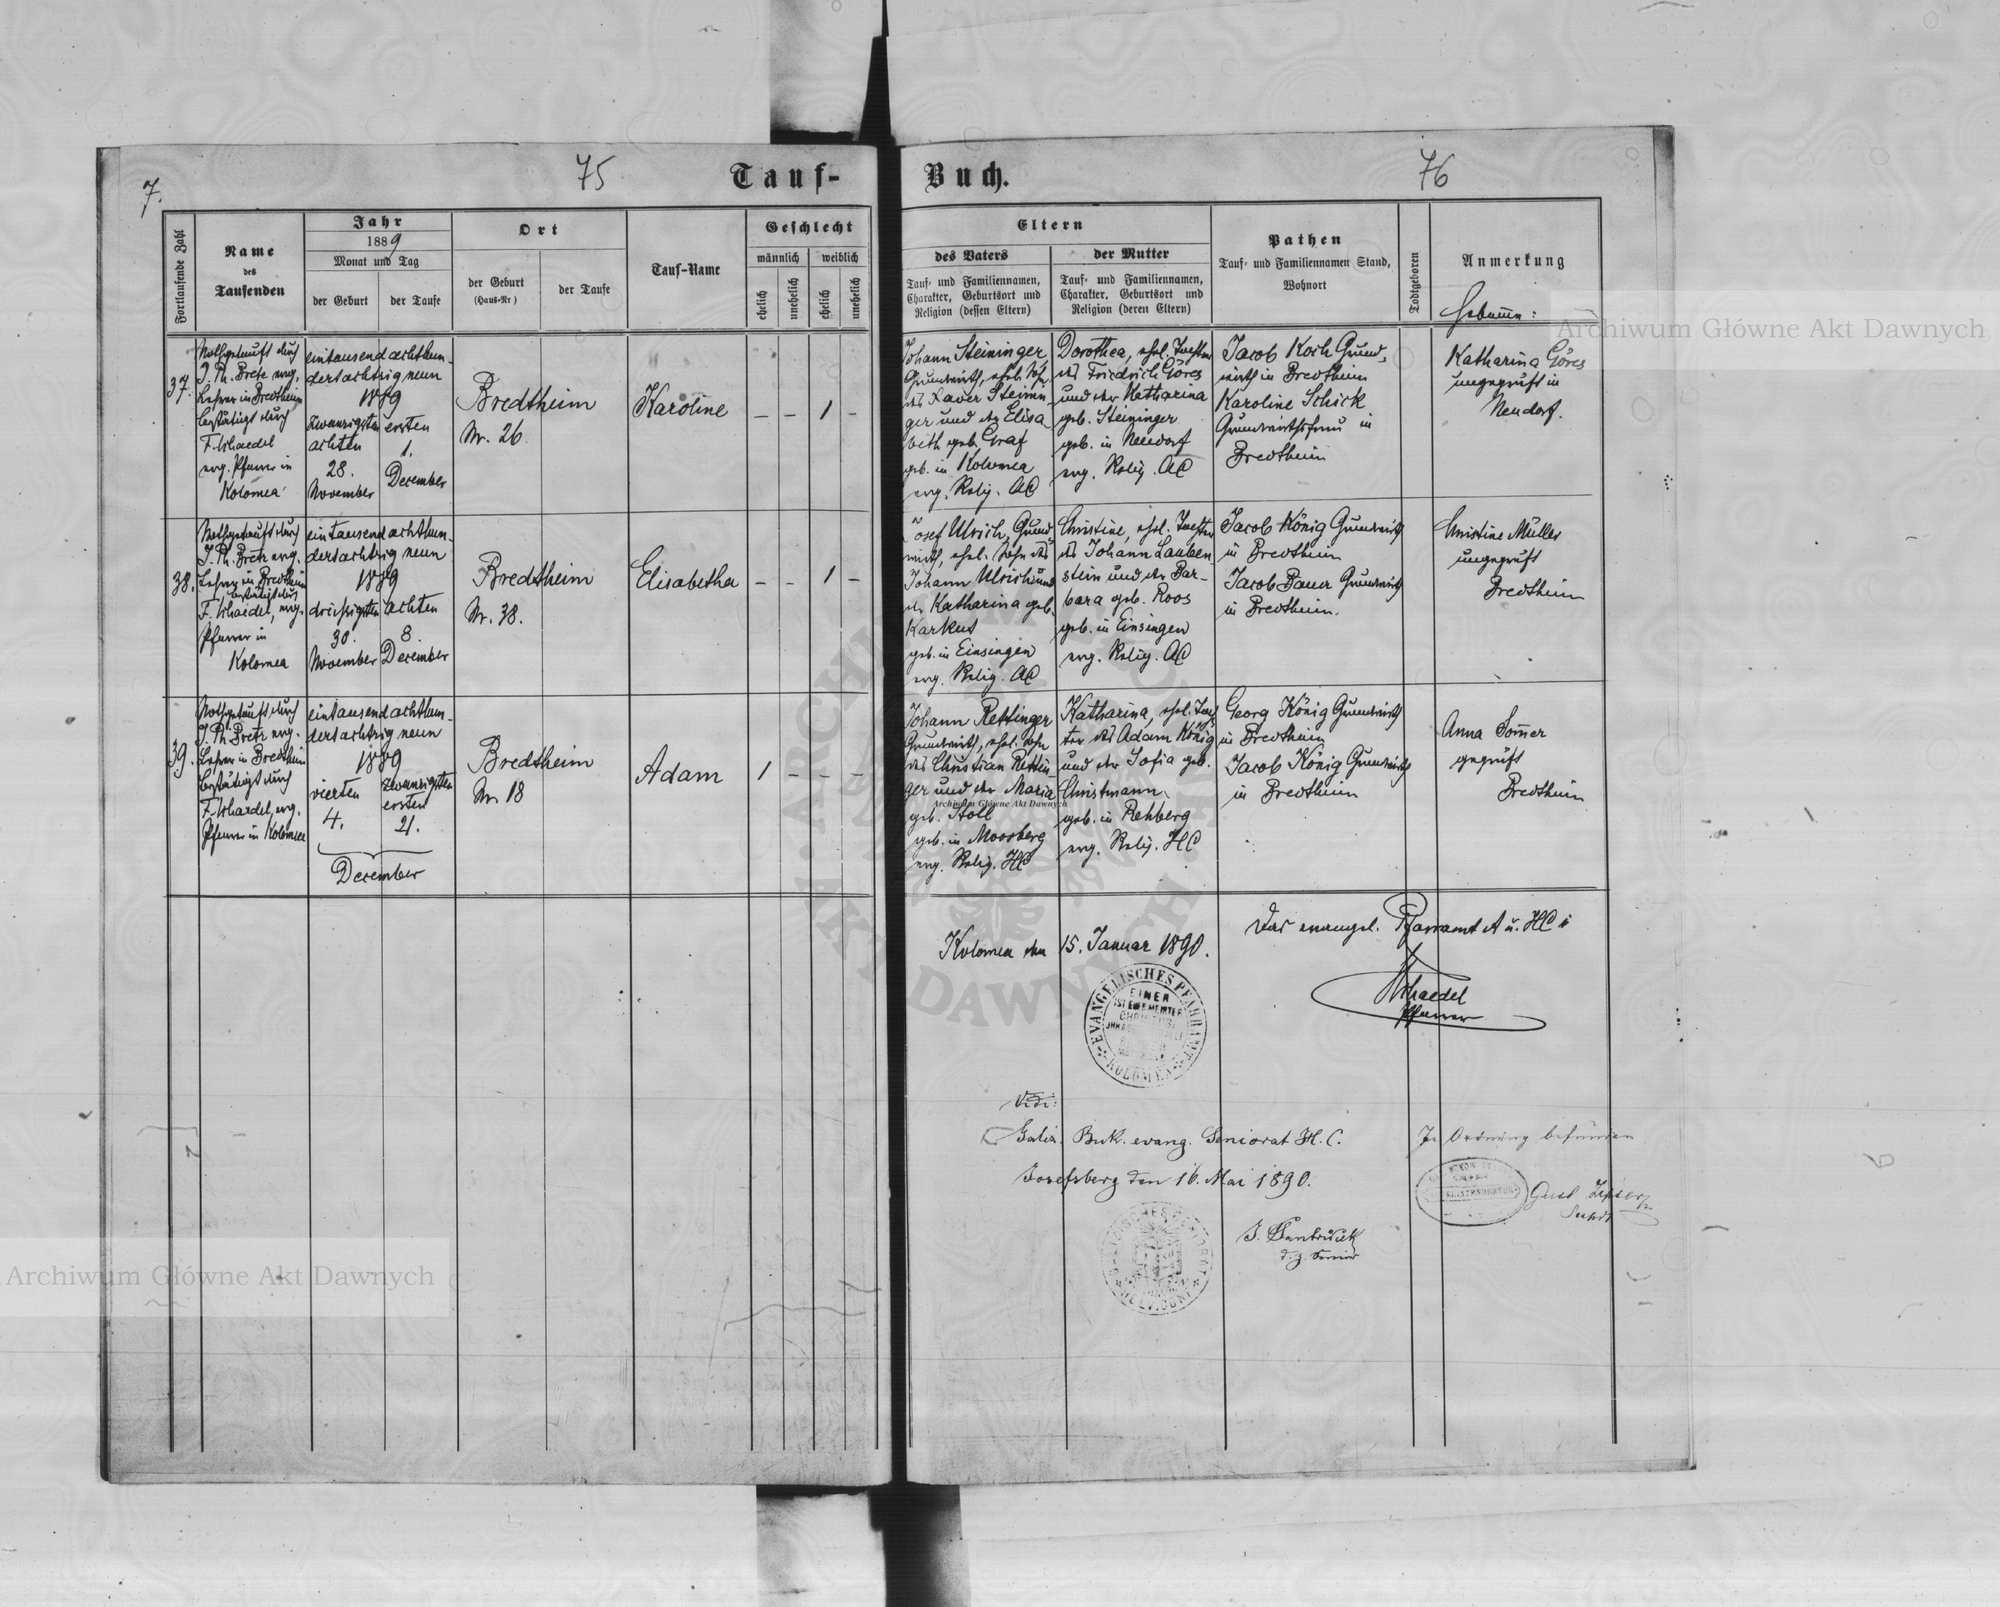 7.
75
Tauf-
Fortlaufende Zahl
Name
des
Taufenden
Jahr
1889
Monat und Tag
der Geburt
der Taufe
Ort
der Geburt
(Haus-Nr)
der Taufe
Tauf-Name
Geschlecht
männlich
weiblich
ehelich
unehelich
ehelich
unehelich
37.
Nothgetauft durch
J. Ph. Bretz evg.
Lehrer in Bredtheim
bestätigt durch
evg. Pfarrer in
Kolomea
eintausend achthun-
dertachtzig neun
1889
zwanzigsten
achten
28.
November
ersten
1.
December
Bredtheim
Nr. 26.
Karoline
– – 1 –
38.
Nothgetauft durch
J. Ph. Bretz evg.
Lehrer in Bredtheim
bestätigt durch
Pfarrer in
Kolomea
eintausend achthun-
dertachtzig neun
1889
dreißigsten
30.
November
achten
8.
December
Bredtheim
Nr. 38.
Elisabetha
– – 1 –
39.
Nothgetauft durch
J. Ph. Bretz evg.
Lehrer in Bredtheim
bestätigt durch
Pfarrer in Kolomea
eintausend achthun-
dertachtzig neun
1889
vierten
4.
zwanzigsten
ersten
21.
December
Bredtheim
Nr. 18
Adam
1 – – –
Buch.
76
Eltern
des Vaters
Tauf- und Familiennamen,
Charakter, Geburtsort und
Religion (dessen Eltern)
der Mutter
Tauf- und Familiennamen,
Charakter, Geburtsort und
Religion (deren Eltern)
Pathen
Tauf- und Familiennamen Stand,
Wohnort
Todtgeboren
Anmerkung
Hebamme:
Johann Steininger,
Grundwirth, ehel. Sohn
des Xaver Steinin-
ger und der Elisa-
beth geb. Graf
geb. in Kolomea
evg. Relig. AC
Dorothea, ehel. Tochter
des Friedrich Göres
und der Katharina
geb. Steininger
geb. in Neudorf
evg. Relig. AC
Jacob Koch Grund-
wirth in Bredtheim
Karoline Schick
Grundwirthsfrau in
Bredtheim
Katharina Göres
ungeprüft in
Neudorf.
Josef Ulrich, Grund-
wirth, ehel. Sohn des
Johann Ulrich und
der Katharina geb.
Karkus
geb. in Einsingen
evg. Relig. AC
Christine, ehel. Tochter
des Johann Lauben-
stein und der Bar-
bara geb. Roos
geb. in Einsingen
evg. Relig. AC
Jacob König Grundwirth
in Bredtheim
Jacob Bauer Grundwirth
in Bredtheim.
Christine Müller
ungeprüft
Bredtheim
Johann Rettinger
Grundwirth, ehel. Sohn
des Christian Rettin-
ger und der Maria
geb. Stoll
geb. in Moosberg
evg. Relig. HC
Katharina, ehel. Toch-
ter des Adam König
und der Sofia geb.
Christmann
geb. in Rehberg
evg. Relig. HC
Georg König Grundwirth
in Bredtheim
Jacob König Grundwirth
in Bredtheim
Anna Somer
geprüft
Bredtheim
Kolomea den 15. Januar 1890.
Das evangel. Pfarramt A u. HC
Pfarrer
EVANGELISCHES PFARRAMT
KOLOMEA
EINER
IST EUER MEISTER
CHRISTUS
Vidi:
Galiz. Buk. evang. Seniorat H. C.
Josefsberg den 16. Mai 1890.
d. z. Senior
In Ordnung befunden
HELV. CONF.
Archiwum Główne Akt Dawnych
Archiwum Główne Akt Dawnych
Archiwum Główne Akt Dawnych